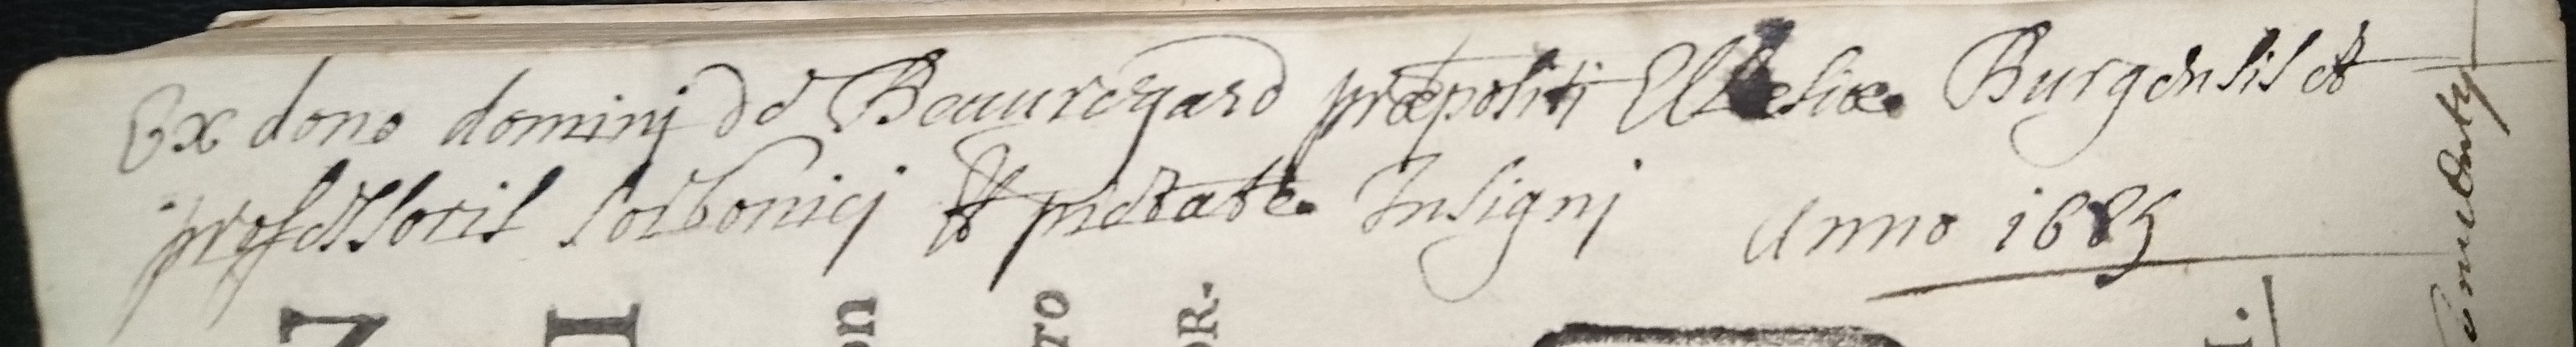 Ex dono dominj de Beauregard præpositi Ecclesiæ Burgensis et
professoris sorbonicj et pietate Insignj Anno 1685
N
I
on
ro
OR-
I.